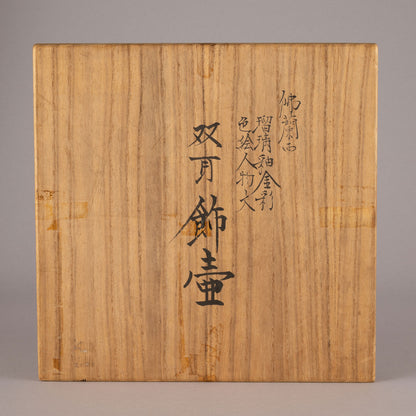 佛蘭西
瑠璃釉金彩
色絵人物文
双耳飾壷